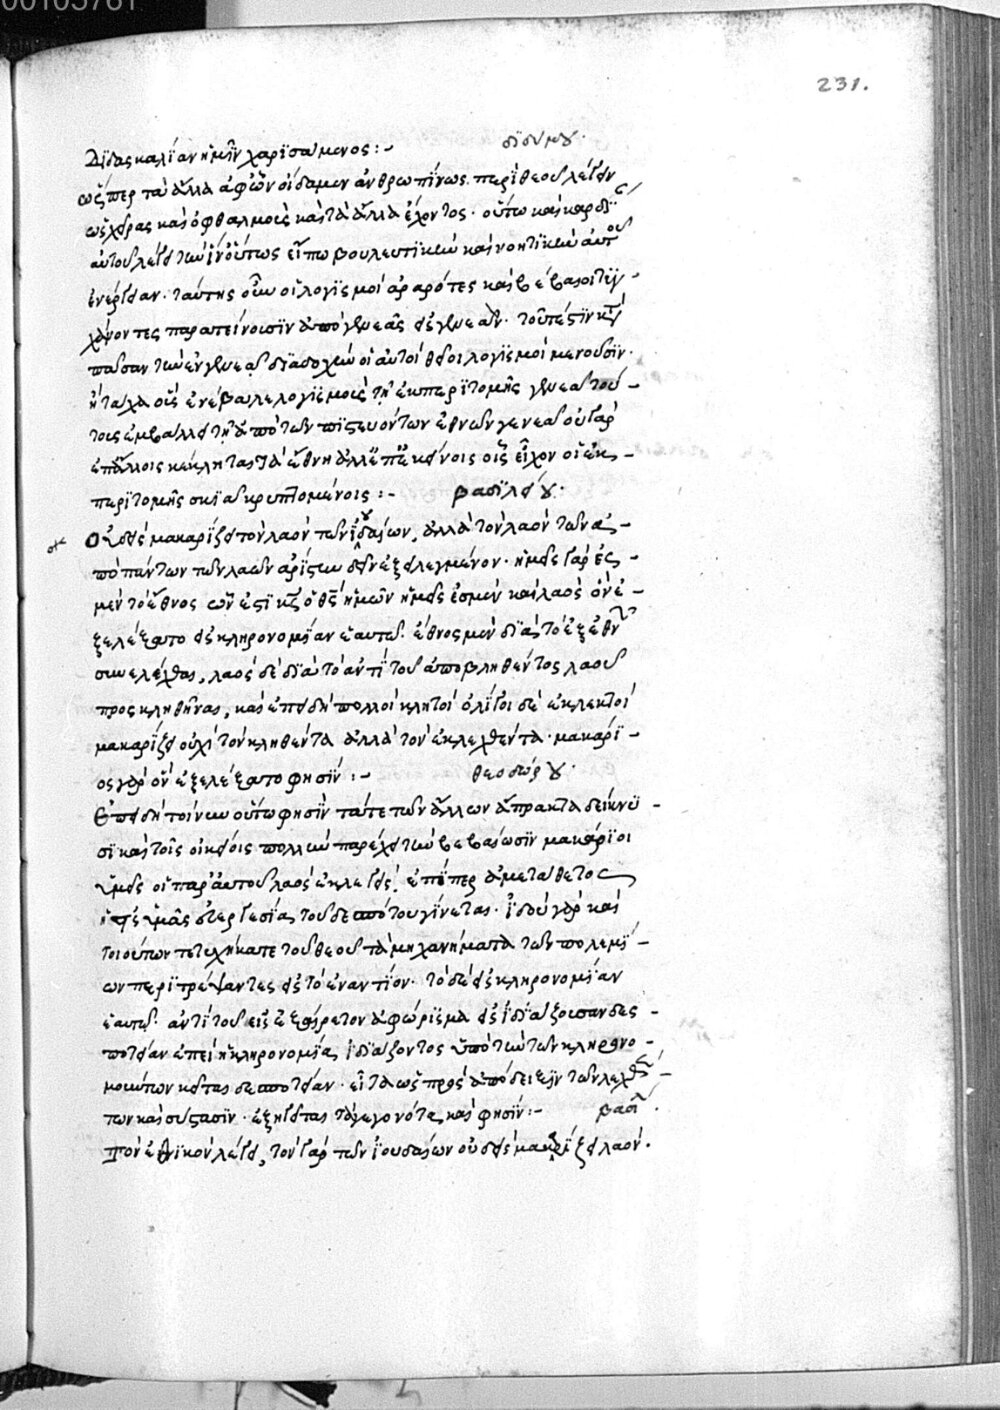 00105761
231.
διδασκαλίαν ἡμῖν χαρισάμενος :- διδύμου.
ὥσπερ τὰ ἄλλα ἀφ' ὧν οἴδαμεν ἀνθρωπίνως περὶ θεοῦ λέγειν
ὡς χεῖρας καὶ ὀφθαλμοὺς καὶ τὰ ἄλλα ἔχοντος. οὕτω καὶ καρδί
αὐτοῦ λέγει τὴν ἵν' οὕτως εἴπω βουλευτικὴν καὶ νοητικὴν αὐτοῦ
ἐνέργειαν. ταύτης οὖν οἱ λογισμοὶ ἀραρότες καὶ βέβαιοι
παρατείνουσιν ἀπὸ γενεᾶς εἰς γενεάν. τουτέστιν
πᾶσαν τὴν ἐν γενεαῖς διαδοχὴν οἱ αὐτοὶ θεῖοι λογισμοὶ μένουσιν.
ἢ τάχα οὓς ἐνέβαλε λογισμοὺς τῇ ἐκ περιτομῆς γενεᾷ τού-
τους ἐμβαλεῖ τῇ ἀπὸ τῶν πιστευόντων ἐθνῶν γενεᾷ οὐ γὰρ
ἐπ' ἄλλοις κέκληται τὰ ἔθνη ἀλλ' ἐπ' ἐκείνοις οἷς εἶχον οἱ ἐκ-
περιτομῆς σκιᾷ κρυπτομένοις :- βασιλείου.
Οὐδεὶς μακαρίζει τὸν λαὸν τῶν ἰουδαίων, ἀλλὰ τὸν λαὸν τῶν ἀ-
πὸ πάντων τῶν λαῶν ἀρίστην ἐξειλεγμένον. ἡμεῖς γάρ ἐσ-
μεν τὸ ἔθνος ὧν ἐστι κς ὁ θς ἡμῶν ἡμεῖς ἐσμὲν καὶ λαὸς ὃν ἐ-
ξελέξατο εἰς κληρονομίαν ἑαυτῷ. ἔθνος μὲν διὰ τὸ ἐξ ἐθνῶν
συνειλέχθαι, λαὸς δὲ διὰ τὸ ἀντὶ τοῦ ἀποβληθέντος λαοῦ
προσκληθῆναι, καὶ ἐπειδὴ πολλοὶ κλητοὶ ὀλίγοι δὲ ἐκλεκτοί
μακαρίζει οὐχὶ τὸν κληθέντα ἀλλὰ τὸν ἐκλεχθέντα. μακάρι-
ος γὰρ ὃν ἐξελέξατο φησίν :- θεοδώρου.
Ἐπειδὴ τοίνυν οὕτω φησὶν τά τε τῶν ἄλλων ἄπρακτα δείκνυ-
σι καὶ τοῖς οἰκείοις πολλὴν παρέχει τὴν βεβαίωσιν μακάριοι
ὑμεῖς οἱ παρ' αὐτοῦ λαὸς ἐκλεγείς, ἐπείπερ ἀμετάθετος
ἡ εἰς ὑμᾶς εὐεργεσία τοῦ δεσπότου γίνεται. ἰδοὺ γὰρ καὶ
τοιούτων τετυχήκατε τοῦ θεοῦ τὰ μηχανήματα τῶν πολεμί-
ων περιτρέψαντες εἰς τὸ ἐναντίον. τὸ δὲ εἰς κληρονομίαν
ἑαυτῷ. ἀντὶ τοῦ εἰς ἐξαίρετον ἀφώρισμα εἰς ἰδιάζουσαν δεσ-
ποτείαν ἐπεὶ ἡ κληρονομία ἰδιάζοντος ὑπὸ τὴν τῶν κληρονο-
μούντων κεῖται δεσποτείαν. εἶτα ὡς πρὸς ἀπόδειξιν τῶν λεχθέν-
των καὶ σύστασιν. ἐξηγεῖται τὰ γεγονότα καὶ φησίν :- βασι
Τὸν ἐθνικὸν λέγει, τὸν γὰρ τῶν ἰουδαίων οὐδεὶς μακαρίζει λαόν.